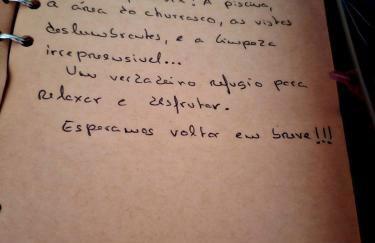 A piscina,
a área do churrasco, as vistas
deslumbrantes, e a limpeza
irrepreensível...
Um verdadeiro refugio para
relaxar e desfrutar.
Esperamos voltar em breve!!!